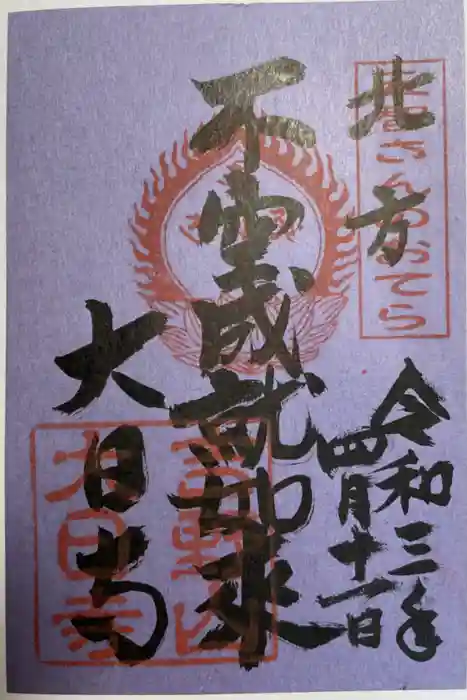 北方
さんのおてら
不空成就如来
大日寺
令和三年
四月十一日
大日寺